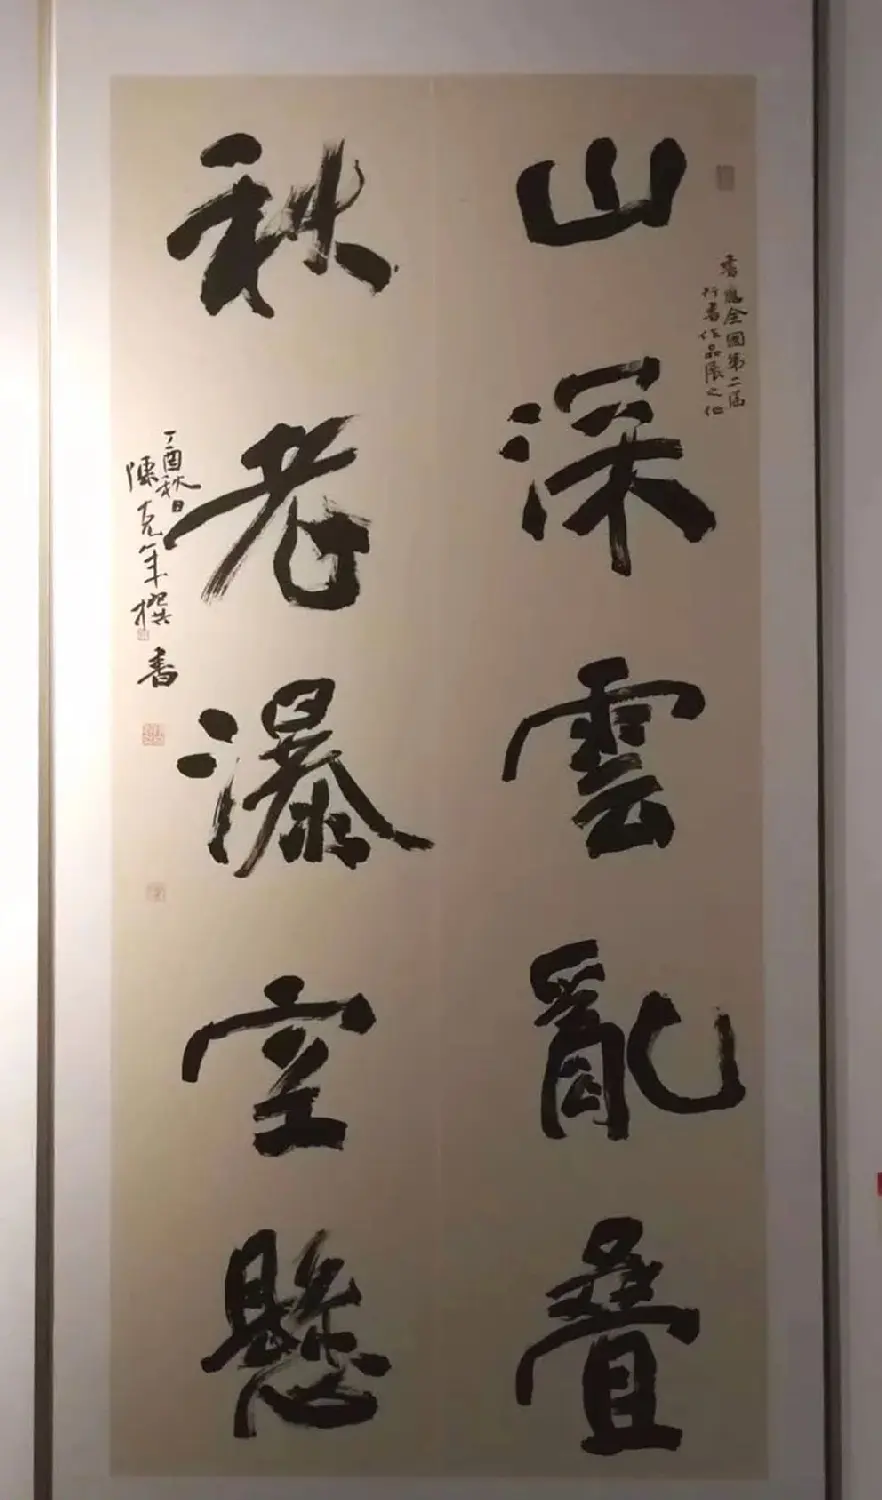 書應全國第二届
行書作品展之
山深雲亂叠
秋老瀑空懸
丁酉秋日
陳克年撰書